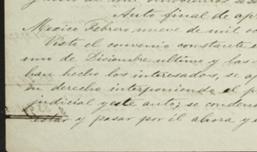 Auto final de apr
Mexico Febrero nueve de mil oc
Visto el convenio constante
uno de Diciembre ultimo y las
han hecho los interesados, se ap
en derecho interponiendo el p
judicial y este auto; se condena
estar y pasar por él ahora y